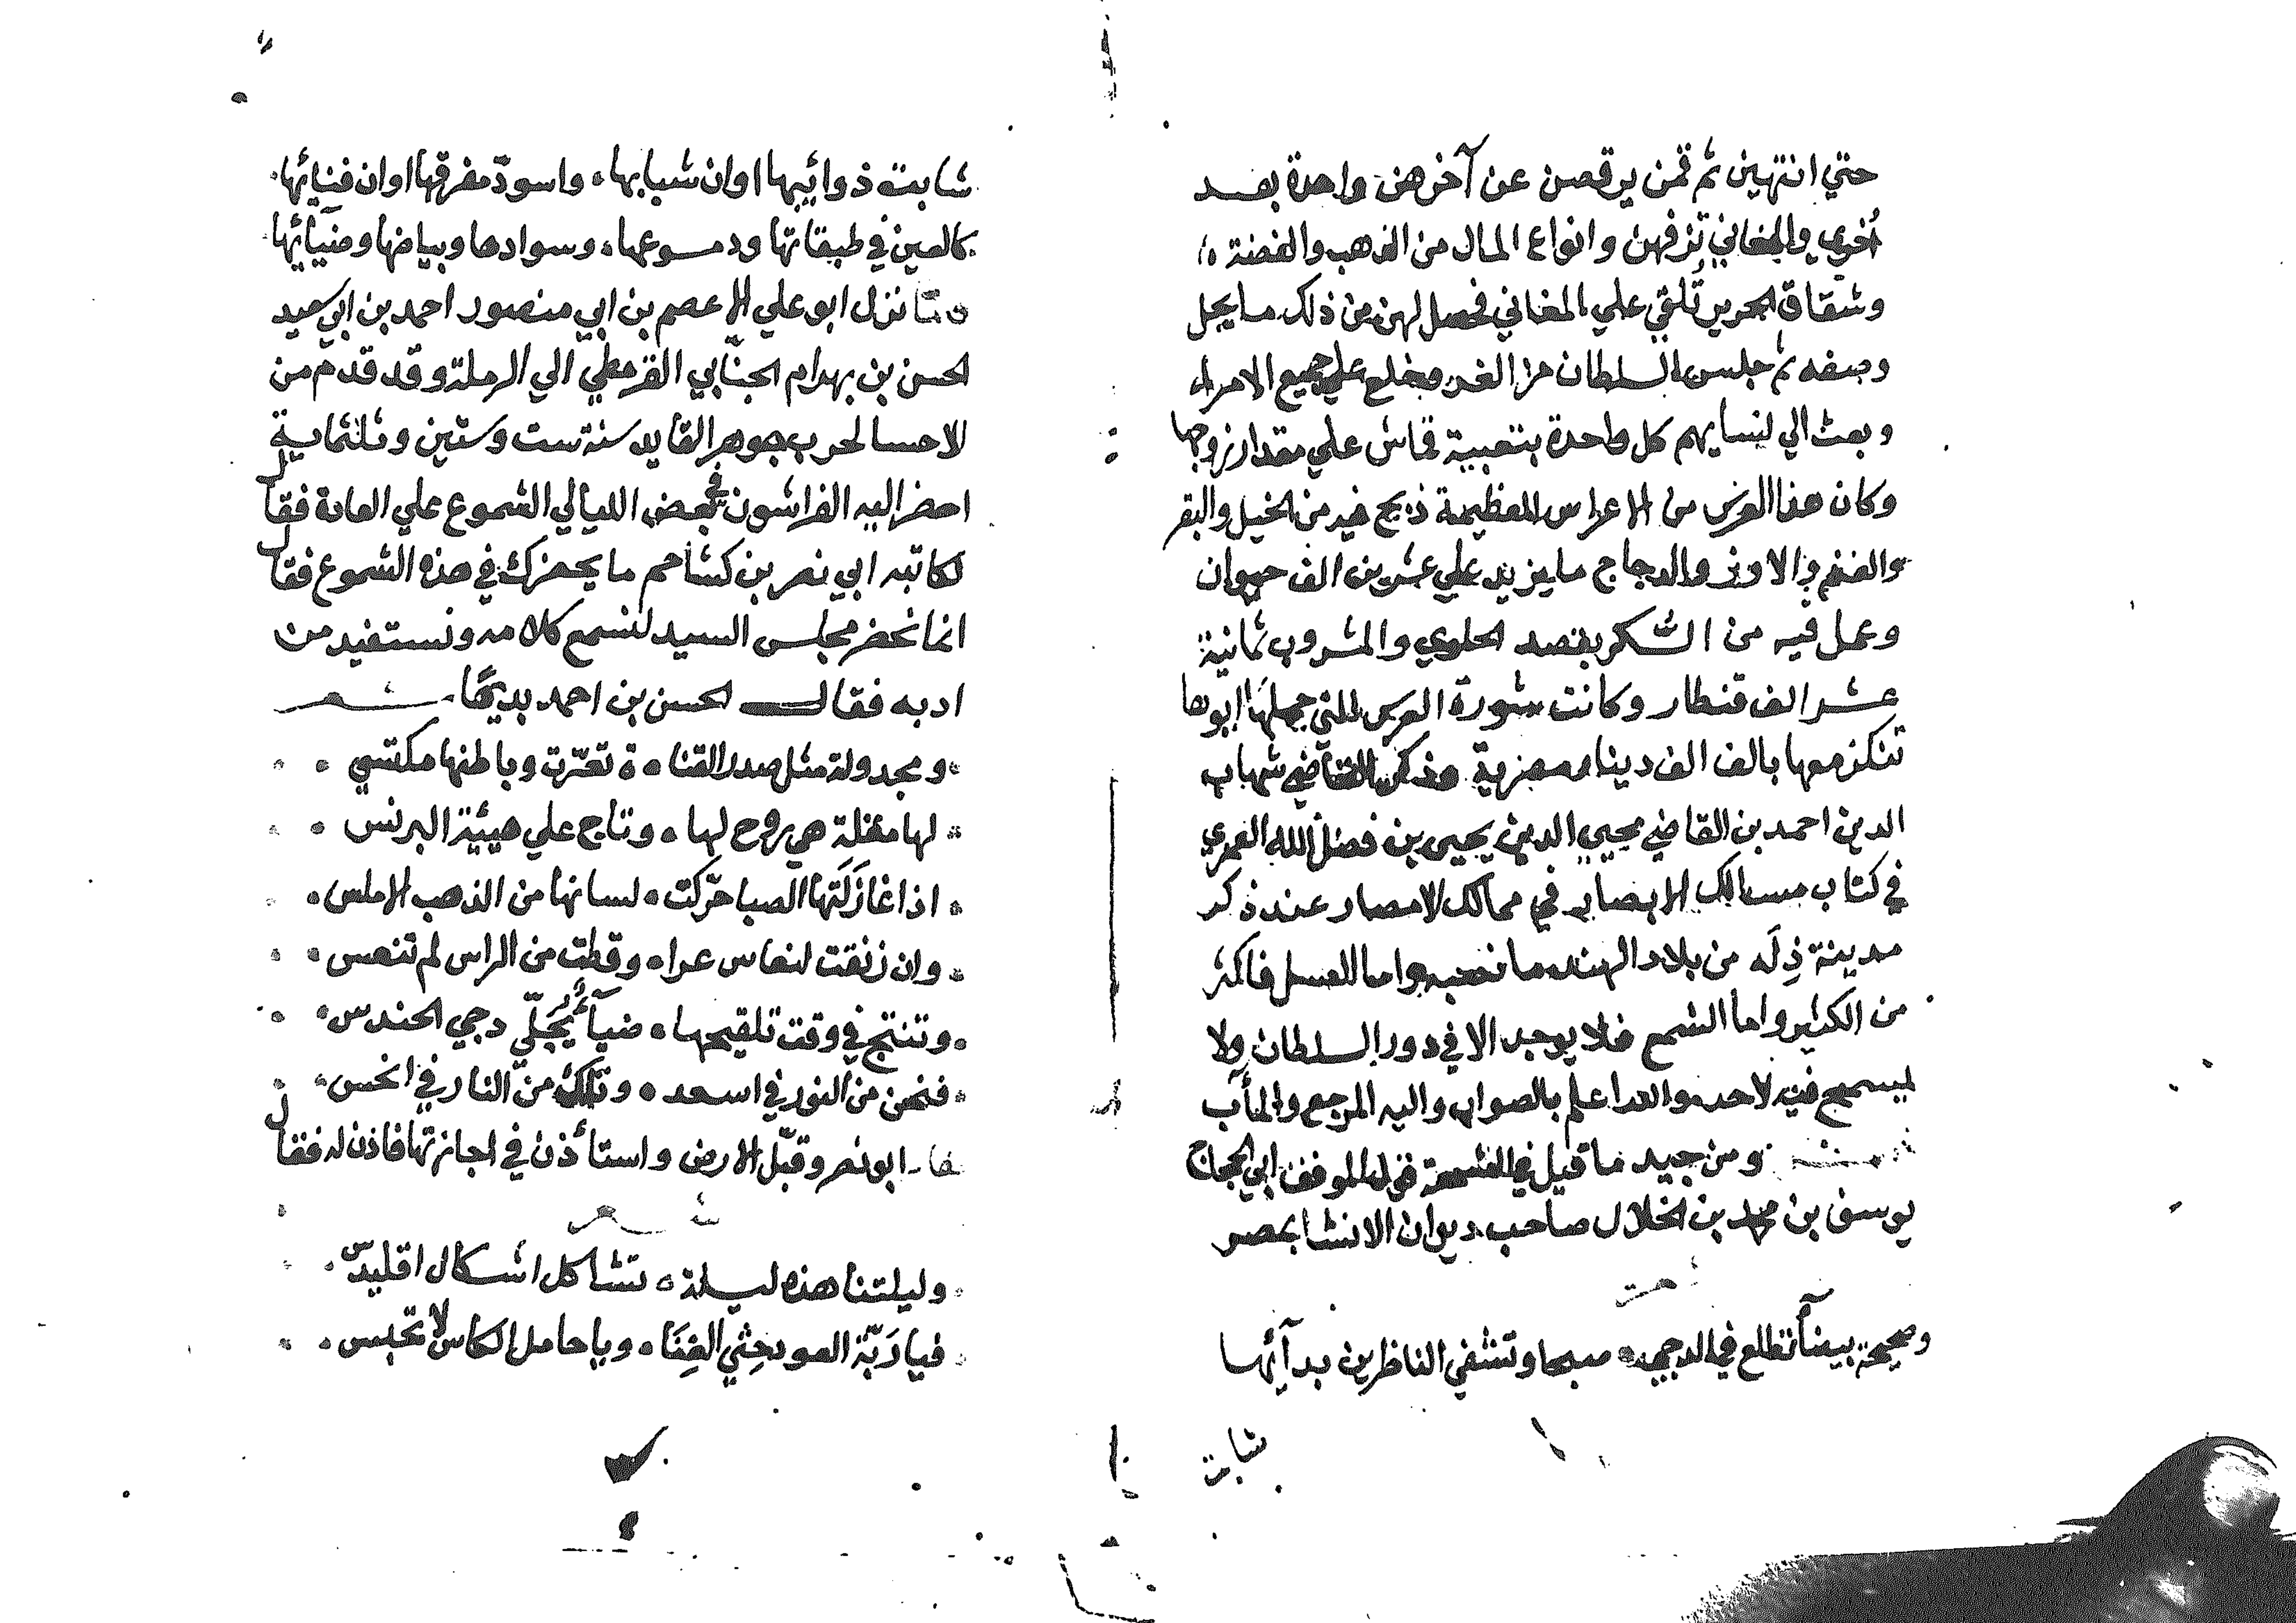 حتي انتهين ثم قمن يرقصن عن آخرهن واحدة بعد
أخري والمغاني تزفهن وانواع المال من الذهب والفضة
وشقاق الحرير تُلقي علي المغاني فحصل لهن من ذلك ما يجل
وصفه ثم جلس السلطان من الغد وخلع علي جميع الامراء
وبعث الي نسايهم كل واحدة بتعبية قماش علي مقدار زوجها
وكان هذا العرس من الاعراس العظيمة ذبح فيه من الخيل والبقر
والغنم والاوز والدجاج ما يزيد علي عشرين الف حيوان
وعمل فيه من السكر بقصد الحلوي والمشروب ثمانية
عشر الف قنطار وكانت شورة العرس التي حملها ابوها
تنكز معها بالف الف دينار مصرية وذكر القاضي شهاب
الدين احمد بن القاضي محيي الدين يحيي بن فضل الله العمري
في كتاب مسالك الابصار في ممالك الامصار عند ذكر
مدينة دِلَه من بلاد الهند ما نصه واما العسل فاكثر
من الكثير واما الشمع فلا يوجد الا في دور السلطان ولا
يسمح فيه لاحد والله اعلم بالصواب واليه المرجع والمأب
ومن جيد ما قيل في الشمعة قول الموفق ابي الحجاج
يوسف بن محمد بن الخلال صاحب ديوان الانشا بمصر
وصحيحة بيضآ تطلع في الدجي صبحا وتشفي الناظرين بدآئها
شابت
شابت ذوائبها اوان شبابها واسودّ مفرقها اوان فنائها
كالعين في طبقاتها ودموعها وسوادها وبياضها وضيآئها
نزل ابو علي الاعصم بن ابي منصور احمد بن ابي سعيد
الحسن بن بهرام الجنّابي القرمطي الي الرملة وقد قدم من
الاحسا لحرب جوهر القايد سنة ست وستين وثلثماية
احضر اليه الفراشون في بعض الليالي الشموع علي العادة فقال
لكاتبه ابي نصر بن كشاجم ما يحضرك في هذه الشموع فقال
انما نحضر مجلس السيد لنسمع كلامه ونستفيد من
ادبه فقال الحسن بن احمد بديهًا شعر
ومجدولة مثل صدر القناة تعرّت وباطنها مكتسي
لها مقلة هي روح لها وتاج علي هيئة البرنس
اذا غازَلَتها الصبا حرّكت لسانها من الذهب الاملس
وان رنقت لنعاس عرا وقطت من الراس لم تنعس
وتنتج في وقت تلقيحها ضيآً يُجَلّي دجي الحندس
فنحن من النور في اسعد وتلك من النار في انحس
ابو نصر وقبّل الارض واستأذن في اجازتها فاذن له فقال
شعر
وليلتنا هذه ليلة تشاكل اشكال اقليدس
فيا رَبّة العود حِثّي الغِنَا ويا حامل الكاس لا تحبس